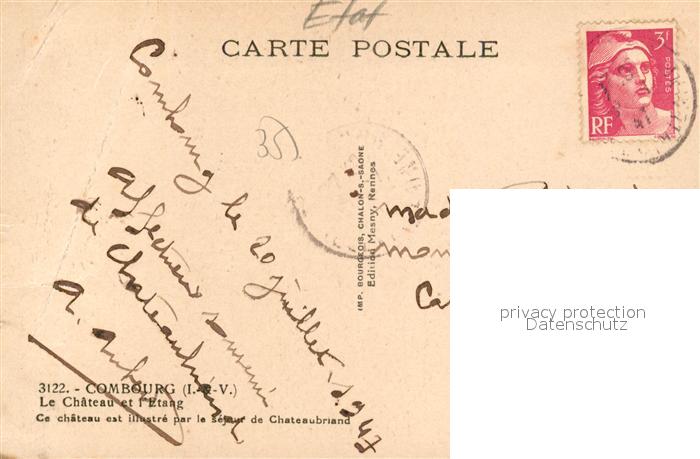 Etat
CARTE POSTALE
3F
POSTES
RF
35
Combourg le 20 juillet 1947
affectueux souvenir
de Chateaubriand
a.
IMP. BOURGEOIS, CHALON-S.-SAONE
Edition Mesny, Rennes
privacy protection
Datenschutz
3122. - COMBOURG (I.-&-V.)
Le Château et l'Etang
Ce château est illustré par le séjour de Chateaubriand